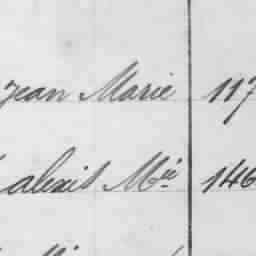 Jean Marie 117
alexis Mie 146